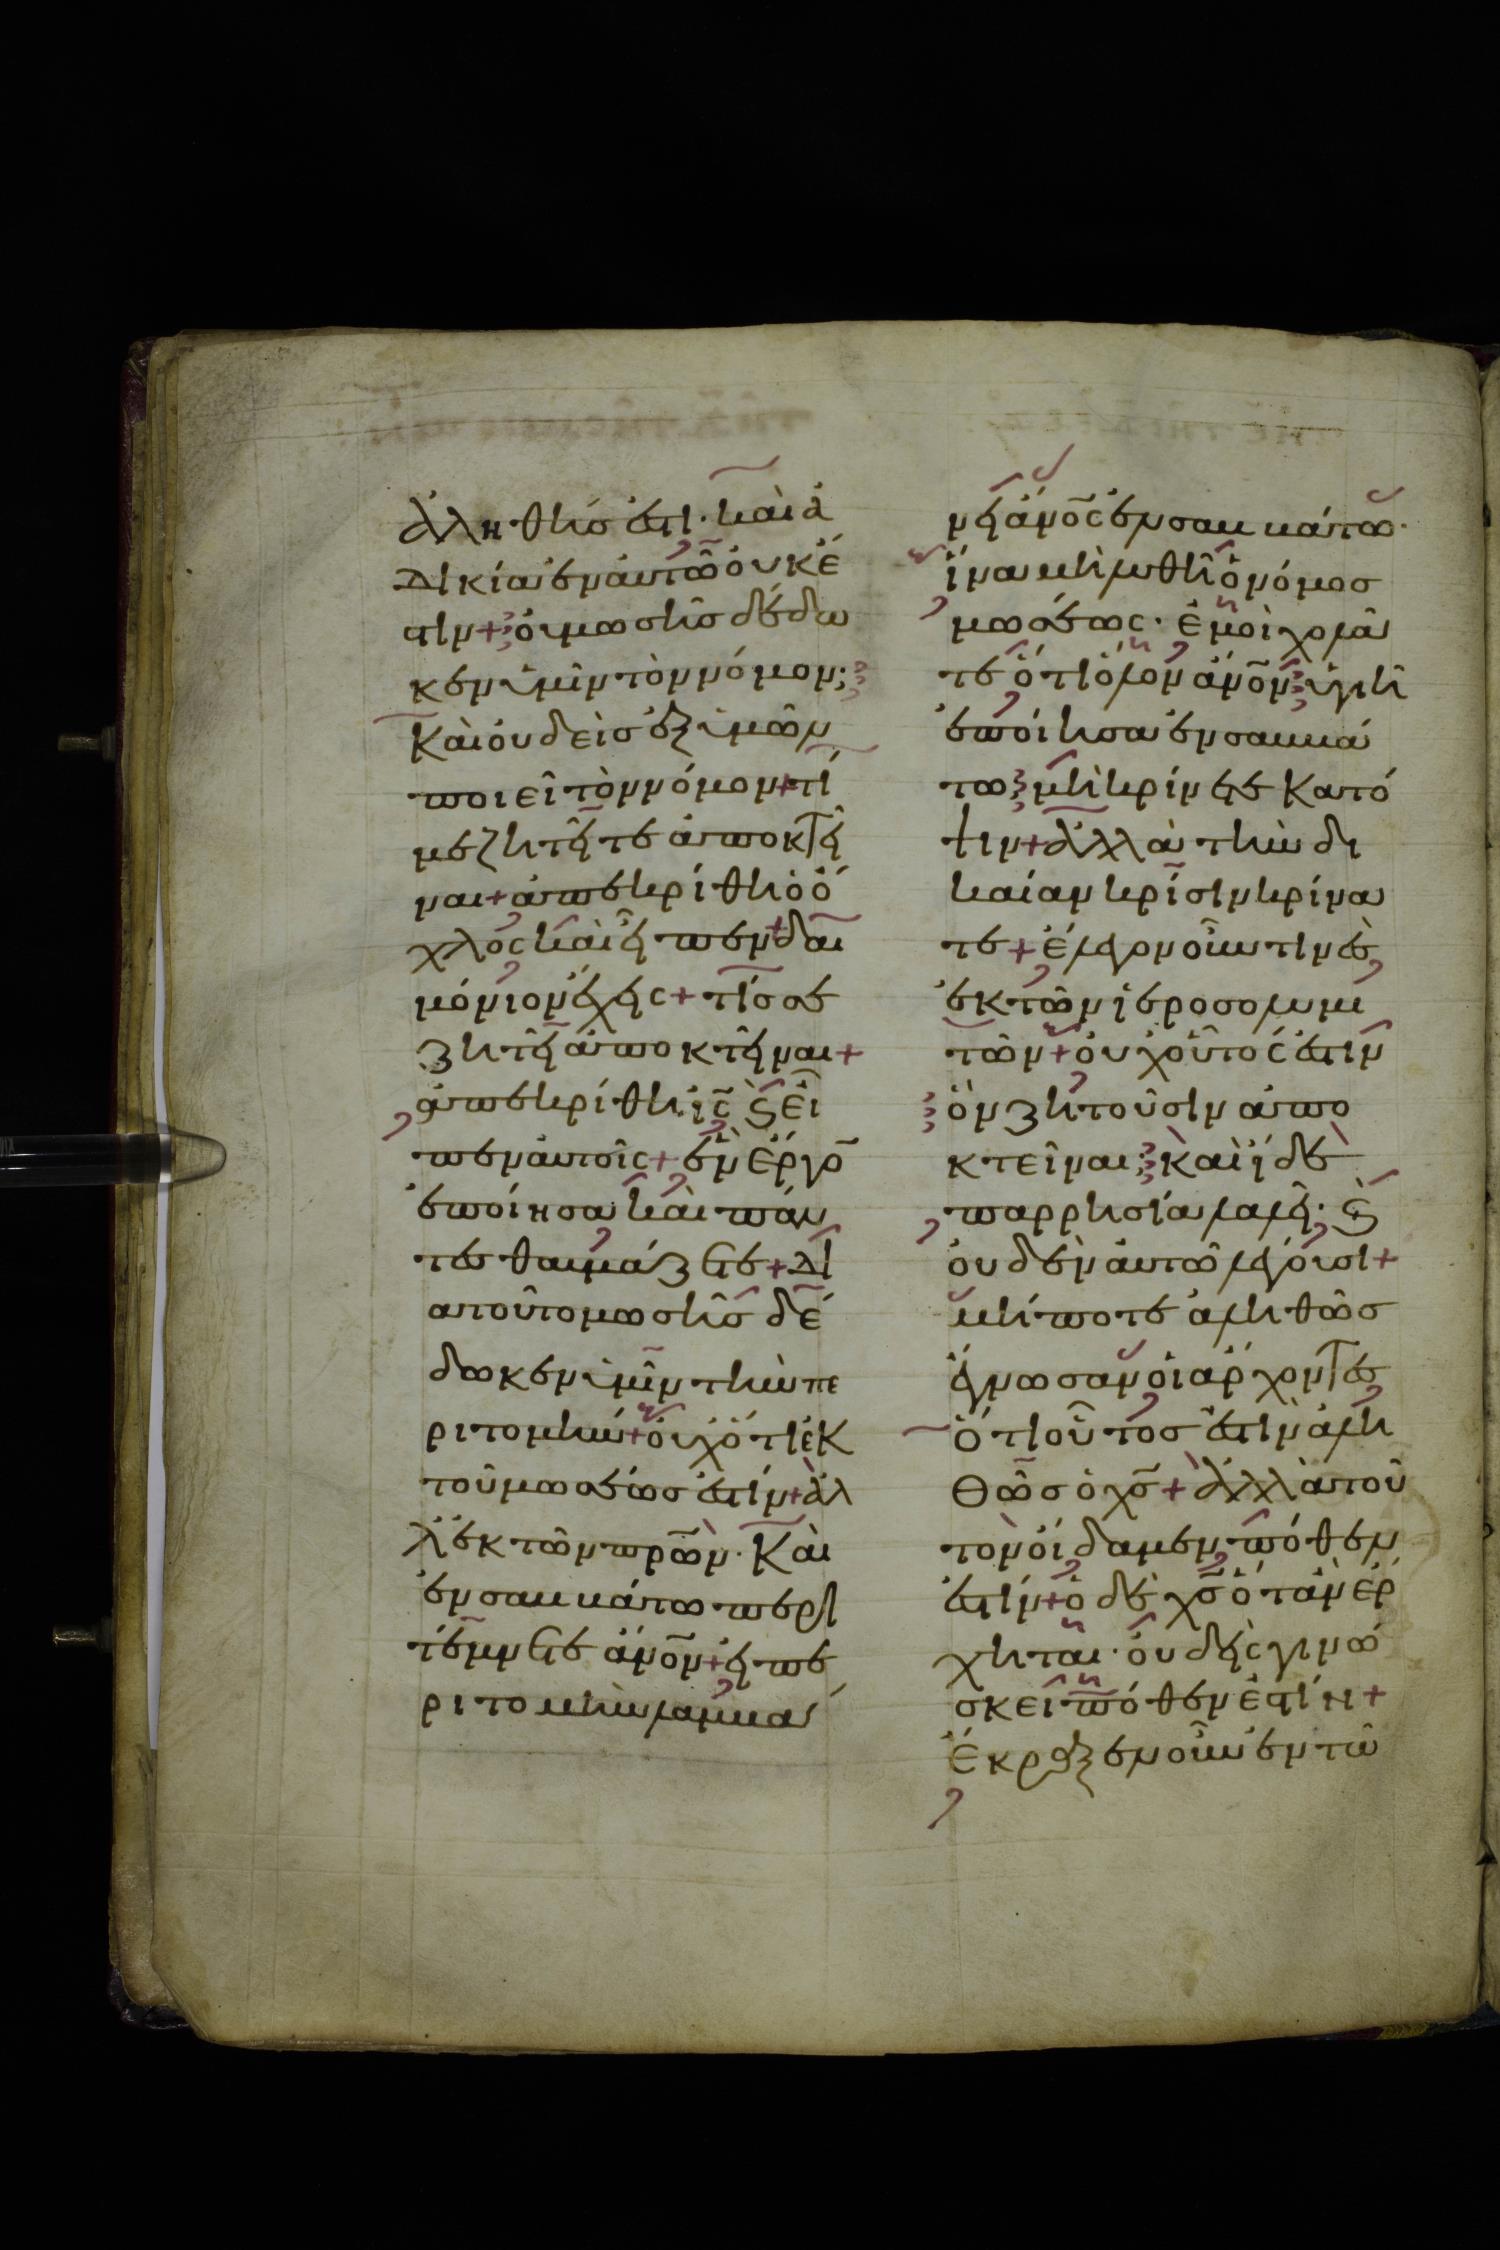 ἀληθής ἐστι· καὶ ἀ
δικία ἐν αὐτῶ οὐκ ἔ
στιν+ οὐ μωσῆς δέδω
κεν ὑμῖν τὸν νόμον;
Καὶ οὐδεὶς ἐξ ὑμῶν
ποιεῖ τὸν νόμον+ τί
με ζητεῖτε ἀποκτεῖ
ναι+ ἀπεκρίθη ὁ ὄ
χλος καὶ εἶπεν+ δαι
μόνιον ἔχεις+ τίς σε
ζητεῖ ἀποκτεῖναι+
ἀπεκρίθη ὁ ις̅ ϗ εἶ
πεν αὐτοῖς+ ἓν ἔργο̅
ἐποίησα καὶ πάν
τες θαυμάζετε+ δι
α τοῦτο μωσῆς δέ
δωκεν ὑμῖν τὴν πε
ριτομήν+ οὐχ ὅτι ἐκ
τοῦ μωσέως ἐστίν+ ἀλ
λ' ἐκ τῶν πρω̅ν· Καὶ
ἐν σαββάτω περι
τέμνετε ἄνο̅ν+ εἰ πε
ριτομὴν λαμβά
νει ἄνο̅ς ἐν σαββάτω·
ἵνα μὴ λυθῆ ὁ νόμος
μωσέως· ἐμοὶ χολᾶ
τε ὅτι ὅλον ἄνο̅ν ὑγιῆ
ἐποίησα ἐν σαββά
τω; μὴ κρίνετε κατ' ὄ
ψιν+ ἀλλὰ τὴν δι
καίαν κρίσιν κρίνα
τε+ ἔλεγον οὖν τινὲς
ἐκ τῶν ἱεροσολυμι
τῶν+ οὐχ οὗτός ἐστιν
ὃν ζητοῦσιν ἀπο
κτεῖναι; καὶ ἴδε
παρρησία λαλεῖ· ϗ
οὐδὲν αὐτῶ λέγουσι+
μήποτε ἀληθῶς
ἔγνωσαν οἱ ἄρχοντες
ὅτι οὗτος ἐστὶν ἀλη
θῶς ὁ χς̅+ ἀλλὰ τοῦ
τον οἴδαμεν πόθεν
ἐστίν+ ὁ δὲ χς̅ ὅταν ἔρ
χηται· οὐδεὶς γινώ
σκει πόθεν ἐστίν+
Ἔκραξεν οὖν ἐν τῶ